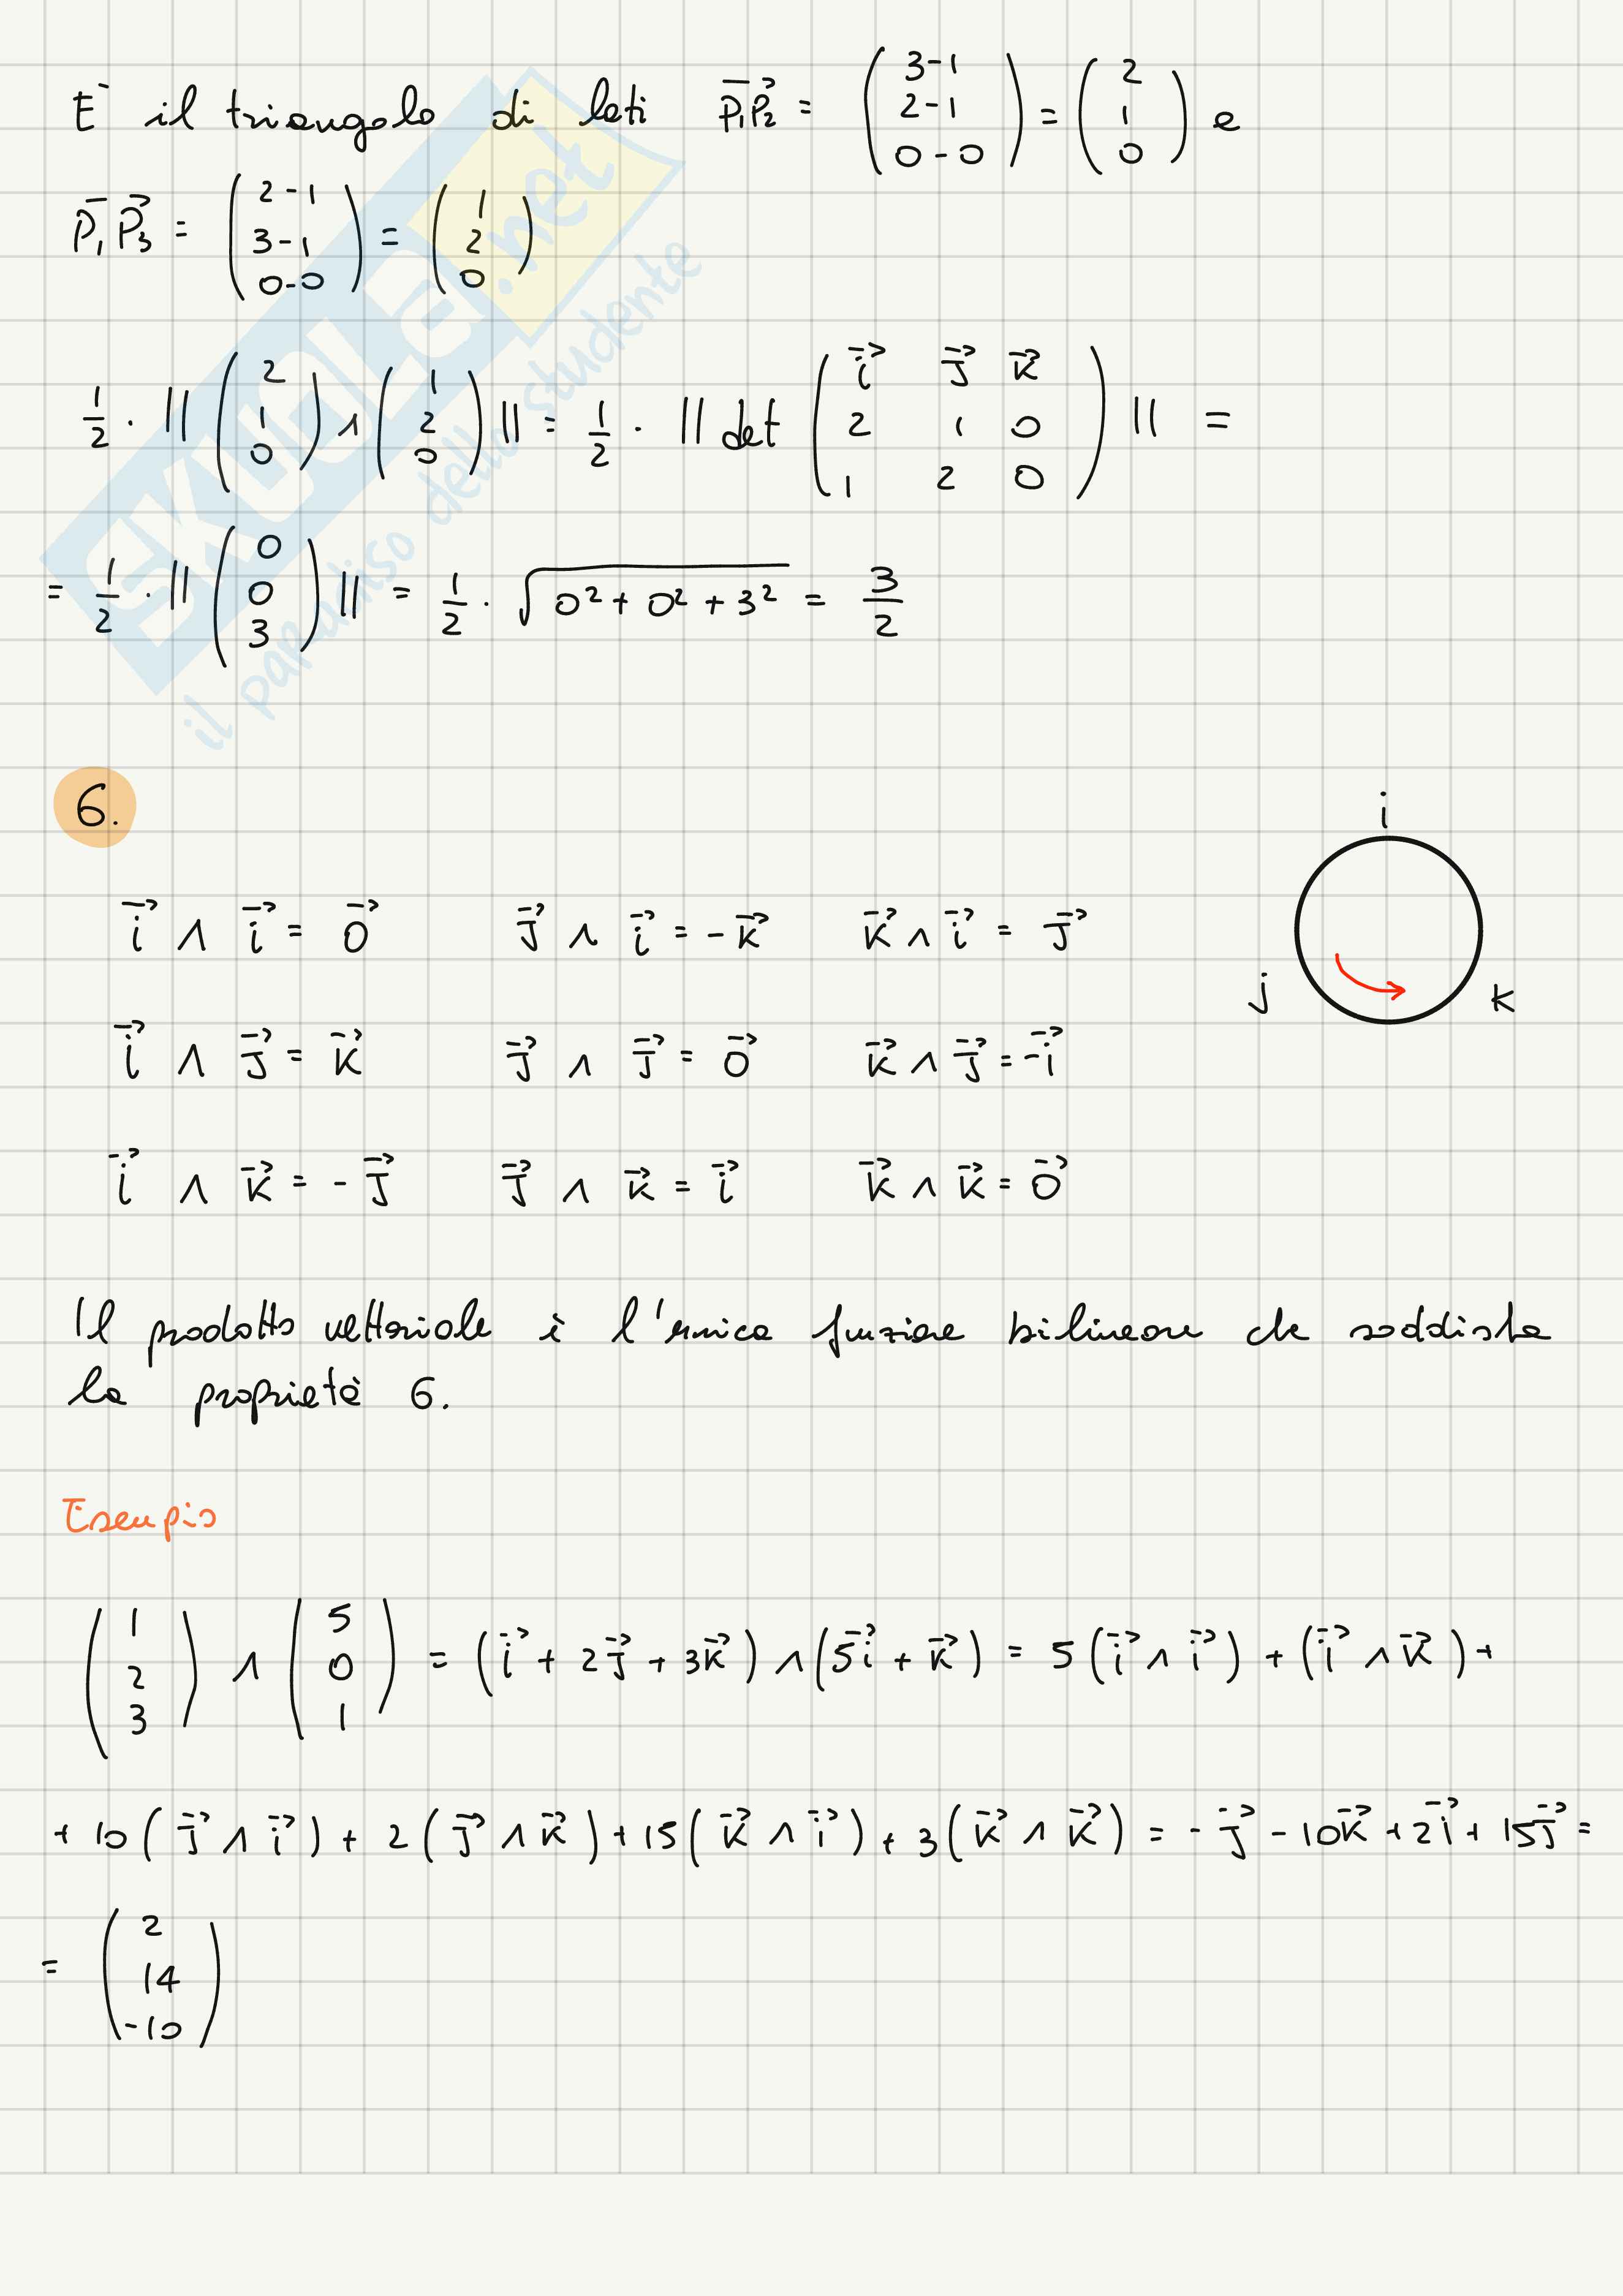 E` il triangolo di lati P₁P₂⃗ = (3-1, 2-1, 0-0) = (2, 1, 0) e
P₁P₃⃗ = (2-1, 3-1, 0-0) = (1, 2, 0)
1/2 · ||(2, 1, 0) ∧ (1, 2, 0)|| = 1/2 · || det (i⃗ j⃗ k⃗; 2 1 0; 1 2 0) || =
= 1/2 · ||(0, 0, 3)|| = 1/2 · √(0² + 0² + 3²) = 3/2
6.
i
j k
i⃗ ∧ i⃗ = 0⃗ j⃗ ∧ i⃗ = -k⃗ k⃗ ∧ i⃗ = j⃗
i⃗ ∧ j⃗ = k⃗ j⃗ ∧ j⃗ = 0⃗ k⃗ ∧ j⃗ = -i⃗
i⃗ ∧ k⃗ = -j⃗ j⃗ ∧ k⃗ = i⃗ k⃗ ∧ k⃗ = 0⃗
Il prodotto vettoriale è l'unica funzione bilineare che soddisfa
la proprietà 6.
Esempio
(1, 2, 3) ∧ (5, 0, 1) = (i⃗ + 2j⃗ + 3k⃗) ∧ (5i⃗ + k⃗) = 5(i⃗ ∧ i⃗) + (i⃗ ∧ k⃗) +
+ 10(j⃗ ∧ i⃗) + 2(j⃗ ∧ k⃗) + 15(k⃗ ∧ i⃗) + 3(k⃗ ∧ k⃗) = -j⃗ - 10k⃗ + 2i⃗ + 15j⃗ =
= (2, 14, -10)
SKUOLA.net
il paradiso dello studente